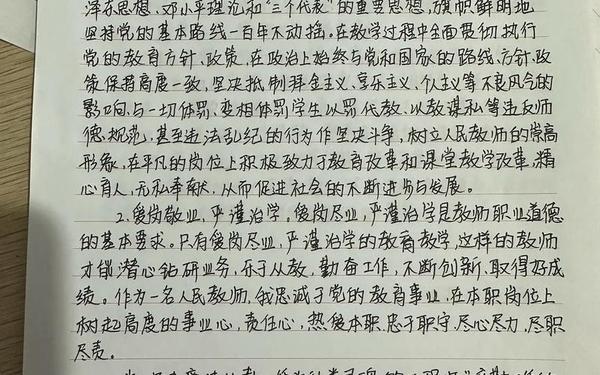 泽东思想、邓小平理论和“三个代表”的重要思想,旗帜鲜明地
坚持党的基本路线一百年不动摇。在教学过程中全面贯彻执行
党的教育方针、政策,在政治上始终与党和国家的路线、方针、政
策保持高度一致,坚决抵制拜金主义、享乐主义、个人主义等不良风气的
影响,与一切体罚、变相体罚学生以罚代教、以教谋私等违反师
德规范,甚至违法乱纪的行为作坚决斗争,树立人民教师的崇高
形象,在平凡的岗位上积极致力于教育改革和课堂教学改革,精
心育人,无私奉献,从而促进社会的不断进步与发展。
2.爱岗敬业,严谨治学,爱岗尽业,严谨治学是教师职业道德
的基本要求。只有爱岗尽业,严谨治学的教育教学,这样的教师
才能潜心钻研业务,乐于从教,勤奋工作,不断创新,取得好成
绩。作为一名人民教师,我忠诚于党的教育事业,在本职岗位上
树起高度的事业心,责任心,热爱本职、忠于职守、尽心尽力,尽职
尽责。